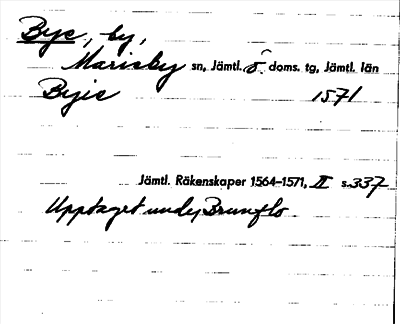 Bye, by,
Marieby sn, Jämtl. ö. doms. tg, Jämtl. län
Byie 1571
Jämtl. Räkenskaper 1564–1571, II s. 337
Upptaget under Brunflo